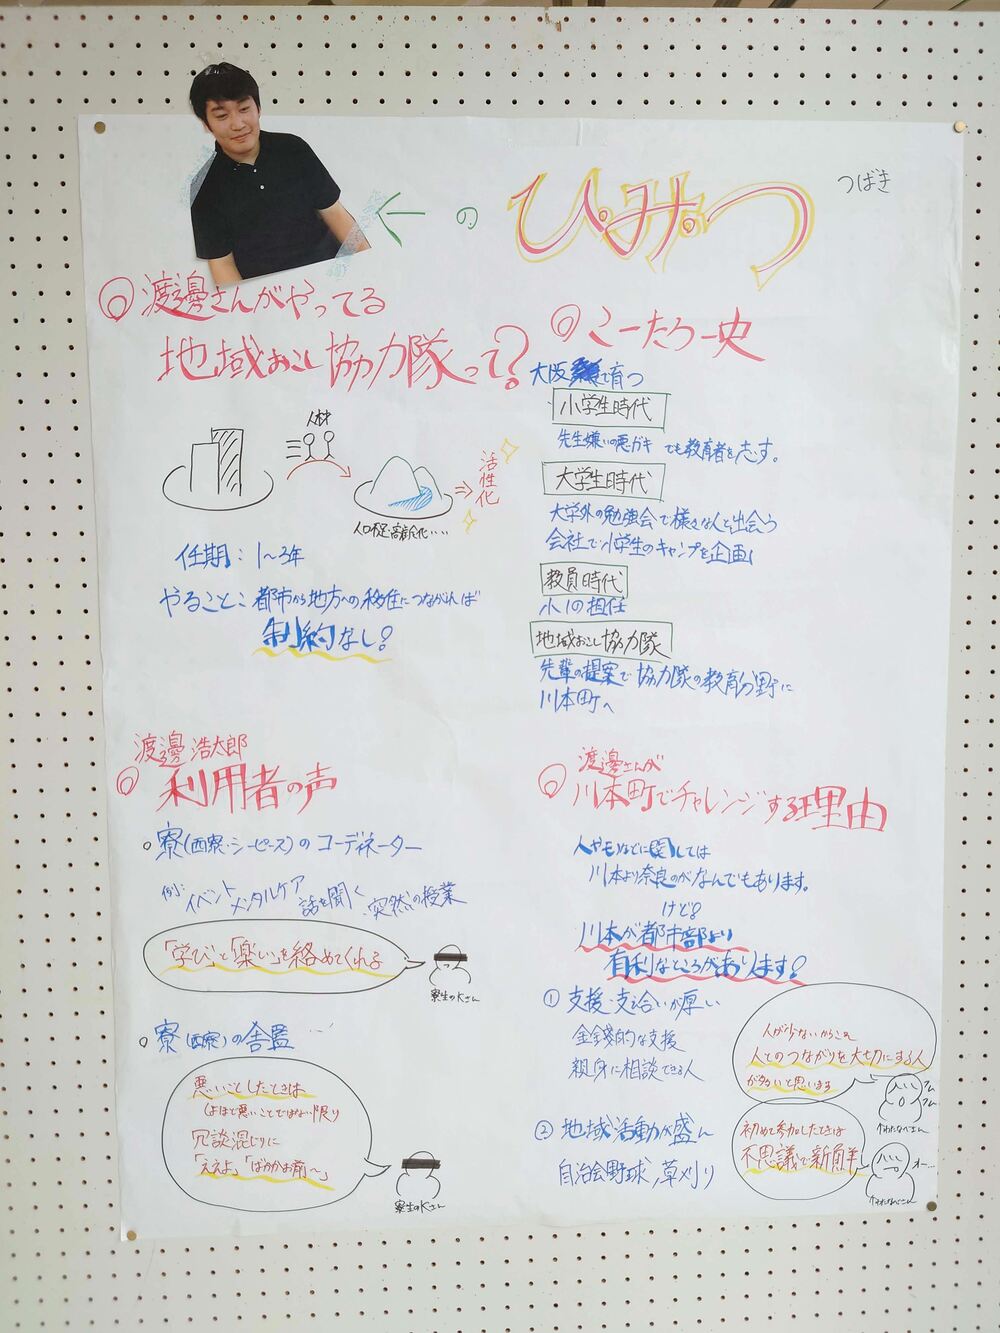 ←の ひみつ
つばき
◎渡邊さんがやってる
地域おこし協力隊って?
人材
人口不足高齢化…
⇒活性化
任期: 1〜3年
やること: 都市から地方への移住につながれば
制約なし!
◎こーたろー史
大阪 で育つ
小学生時代
先生嫌いの悪ガキ でも教育者を志す。
大学生時代
大学外の勉強会で様々な人と出会う
会社で小学生のキャンプを企画
教員時代
小1の担任
地域おこし協力隊
先輩の提案で協力隊の教育分野に
川本町へ
渡邊浩太郎
◎利用者の声
○寮(西寮・シーピース)のコーディネーター
例: イベント メンタルケア 話を聞く 突然の授業
「学び」と「楽しい」を絡めてくれる
寮生のKさん
○寮(西寮)の舎監
悪いことしたときは
(よほど悪いことではない限り
冗談混じりに
「ええよ」「ばかかお前〜」
寮生のKさん
渡邊さんが
◎川本町でチャレンジする理由
人やモノなどに関しては
川本より奈良のがなんでもあります。
けど!
川本が都市部より
有利なところがあります!
①支援・支え合いが厚い
金銭的な支援
親身に相談できる人
人が少ないからこそ
人とのつながりを大切にする人
が多いと思います
わたなべさん
②地域活動が盛ん
自治会野球、草刈り
初めて参加したときは
不思議で新鮮
オー…
わたなべさん